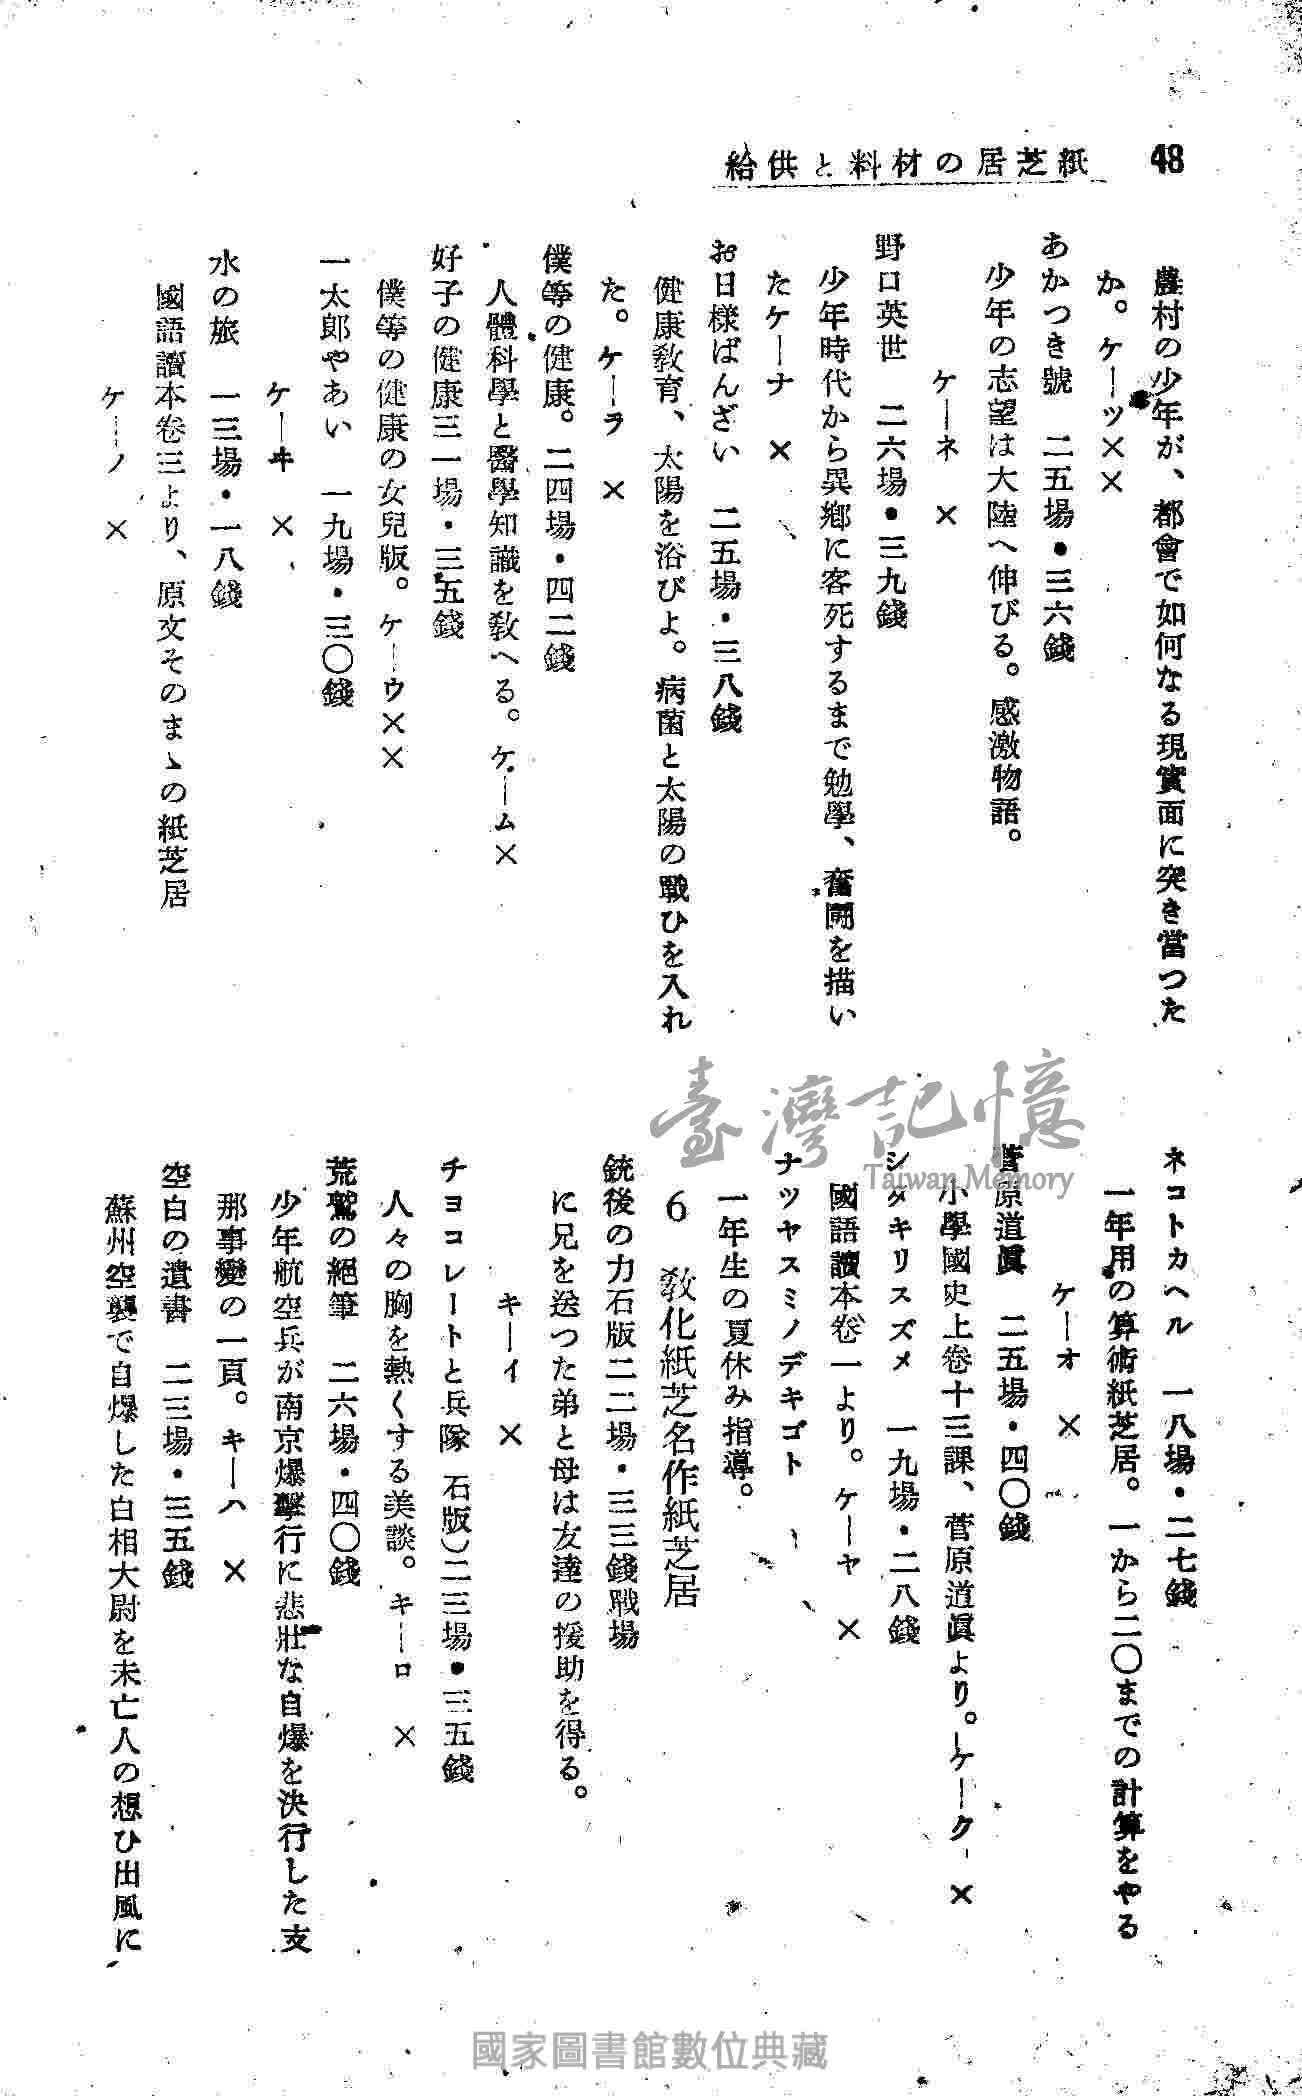 48
紙芝居の材料と供給
農村の少年が、都會で如何なる現實面に突き當つた
か。ケ―ツ××
あかつき號　二五場・三六錢
少年の志望は大陸へ伸びる。感激物語。
ケ―ネ　×
野口英世　二六場・三九錢
少年時代から異鄕に客死するまで勉學、奮鬪を描い
たケ―ナ　×
お日樣ばんざい　二五場・三八錢
健康敎育、太陽を浴びよ。病菌と太陽の戰ひを入れ
た。ケ―ラ　×
僕等の健康。二四場・四二錢
人體科學と醫學知識を敎へる。ケ―ム×
好子の健康三一場・三五錢
僕等の健康の女兒版。ケ―ウ××
一太郎やあい　一九場・三〇錢
ケ―ヰ　×
水の旅　一三場・一八錢
國語讀本卷三より、原文そのまゝの紙芝居
ケ―ノ　×
ネコトカヘル　一八場・二七錢
一年用の算術紙芝居。一から二〇までの計算をやる
ケ―オ　×
菅原道眞　二五場・四〇錢
小學國史上卷十三課、菅原道眞より。ケ―ク　×
シタキリスズメ　一九場・二八錢
國語讀本卷一より。ケ―ヤ　×
ナツヤスミノデキゴト
一年生の夏休み指導。
6　敎化紙芝名作紙芝居
銃後の力石版二二場・三三錢戰場
に兄を送つた弟と母は友達の援助を得る。
キ―イ　×
チヨコレートと兵隊　石版)二三場・三五錢
人々の胸を熱くする美談。キ―ロ　×
荒鷲の絕筆　二六場・四〇錢
少年航空兵が南京爆擊行に悲壯な自爆を決行した支
那事變の一頁。キ―ハ　×
空白の遺書　二三場・三五錢
蘇州空襲で自爆した白相大尉を未亡人の想ひ出風に
臺灣記憶
Taiwan Memory
國家圖書館數位典藏